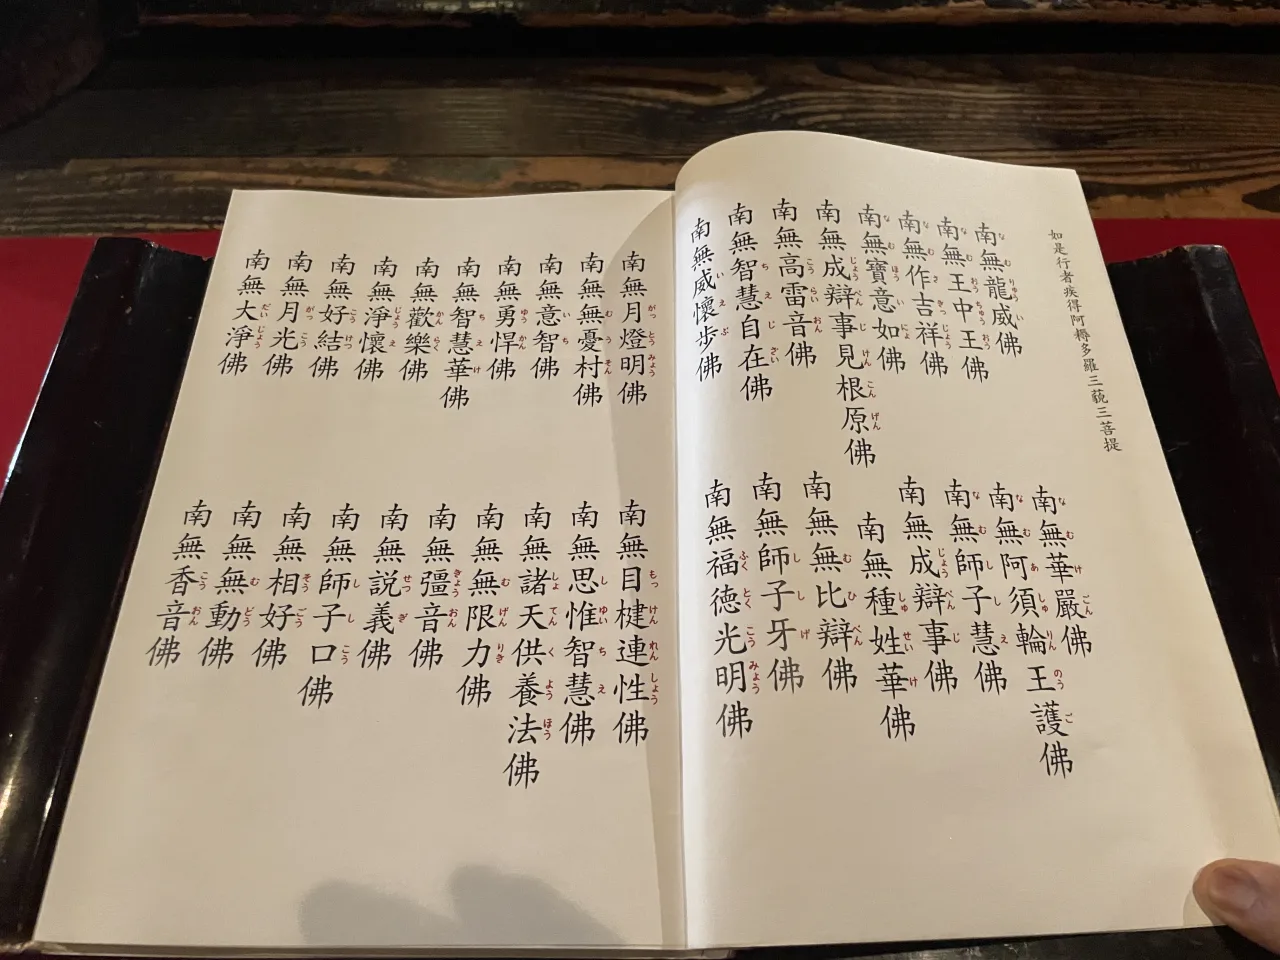 如是行者疾得阿耨多羅三藐三菩提
南無龍威佛
南無王中王佛
南無作吉祥佛
南無寶意如佛
南無成辯事見根原佛
南無高雷音佛
南無智慧自在佛
南無威懷步佛
南無華嚴佛
南無阿須輪王護佛
南無師子慧佛
南無成辯事佛
南無種姓華佛
南無無比辯佛
南無師子牙佛
南無福徳光明佛
南無月燈明佛
南無無憂村佛
南無意智佛
南無勇悍佛
南無智慧華佛
南無歡樂佛
南無淨懷佛
南無好結佛
南無月光佛
南無大淨佛
南無目犍連性佛
南無思惟智慧佛
南無諸天供養法佛
南無無限力佛
南無彊音佛
南無説義佛
南無師子口佛
南無相好佛
南無無動佛
南無香音佛